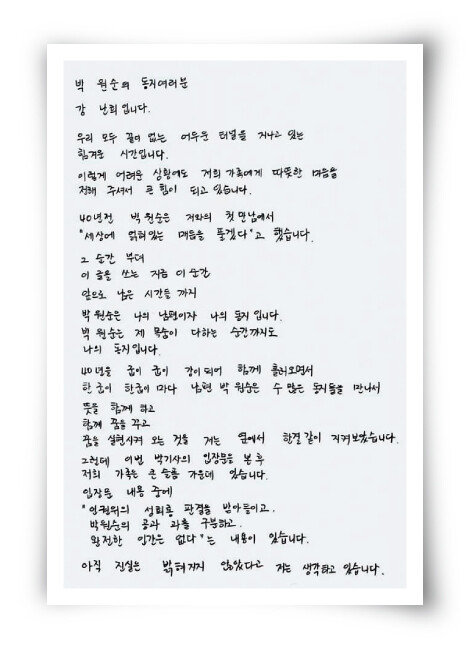 박 원순의 동지여러분
강 난희입니다.
우리 모두 끝이 없는 어두운 터널을 지나고 있는
힘겨운 시간입니다.
이렇게 어려운 상황에도 저희 가족에게 따뜻한 마음을
전해 주셔서 큰 힘이 되고 있습니다.
40년전 박 원순은 저와의 첫 만남에서
"세상에 얽혀있는 매듭을 풀겠다"고 했습니다.
그 순간 부터
이 글을 쓰는 지금 이 순간
앞으로 남은 시간들 까지
박 원순은 나의 남편이자 나의 동지입니다.
박 원순은 제 목숨이 다하는 순간까지도
나의 동지입니다.
40년을 굽이 굽이 강이되어 함께 흘러오면서
한굽이 한굽이 마다 남편 박 원순은 수 많은 동지들을 만나서
뜻을 함께 하고
함께 꿈을 꾸고
꿈을 실현시켜 오는 것을 저는 옆에서 한결같이 지켜보았습니다.
그런데 이번 박기사의 입장문을 본 후
저희 가족은 큰 슬픔 가운데 있습니다.
입장문 내용 중에
"인권위의 성희롱 판결을 받아들이고,
박원순의 공과 과를 구분하고,
완전한 인간은 없다"는 내용이 있습니다.
아직 진실은 밝혀지지 않았다고 저는 생각하고 있습니다.